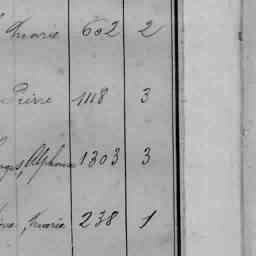 Marie 602 2
Pierre 1118 3
Alphonse 1303 3
Marie 238 1